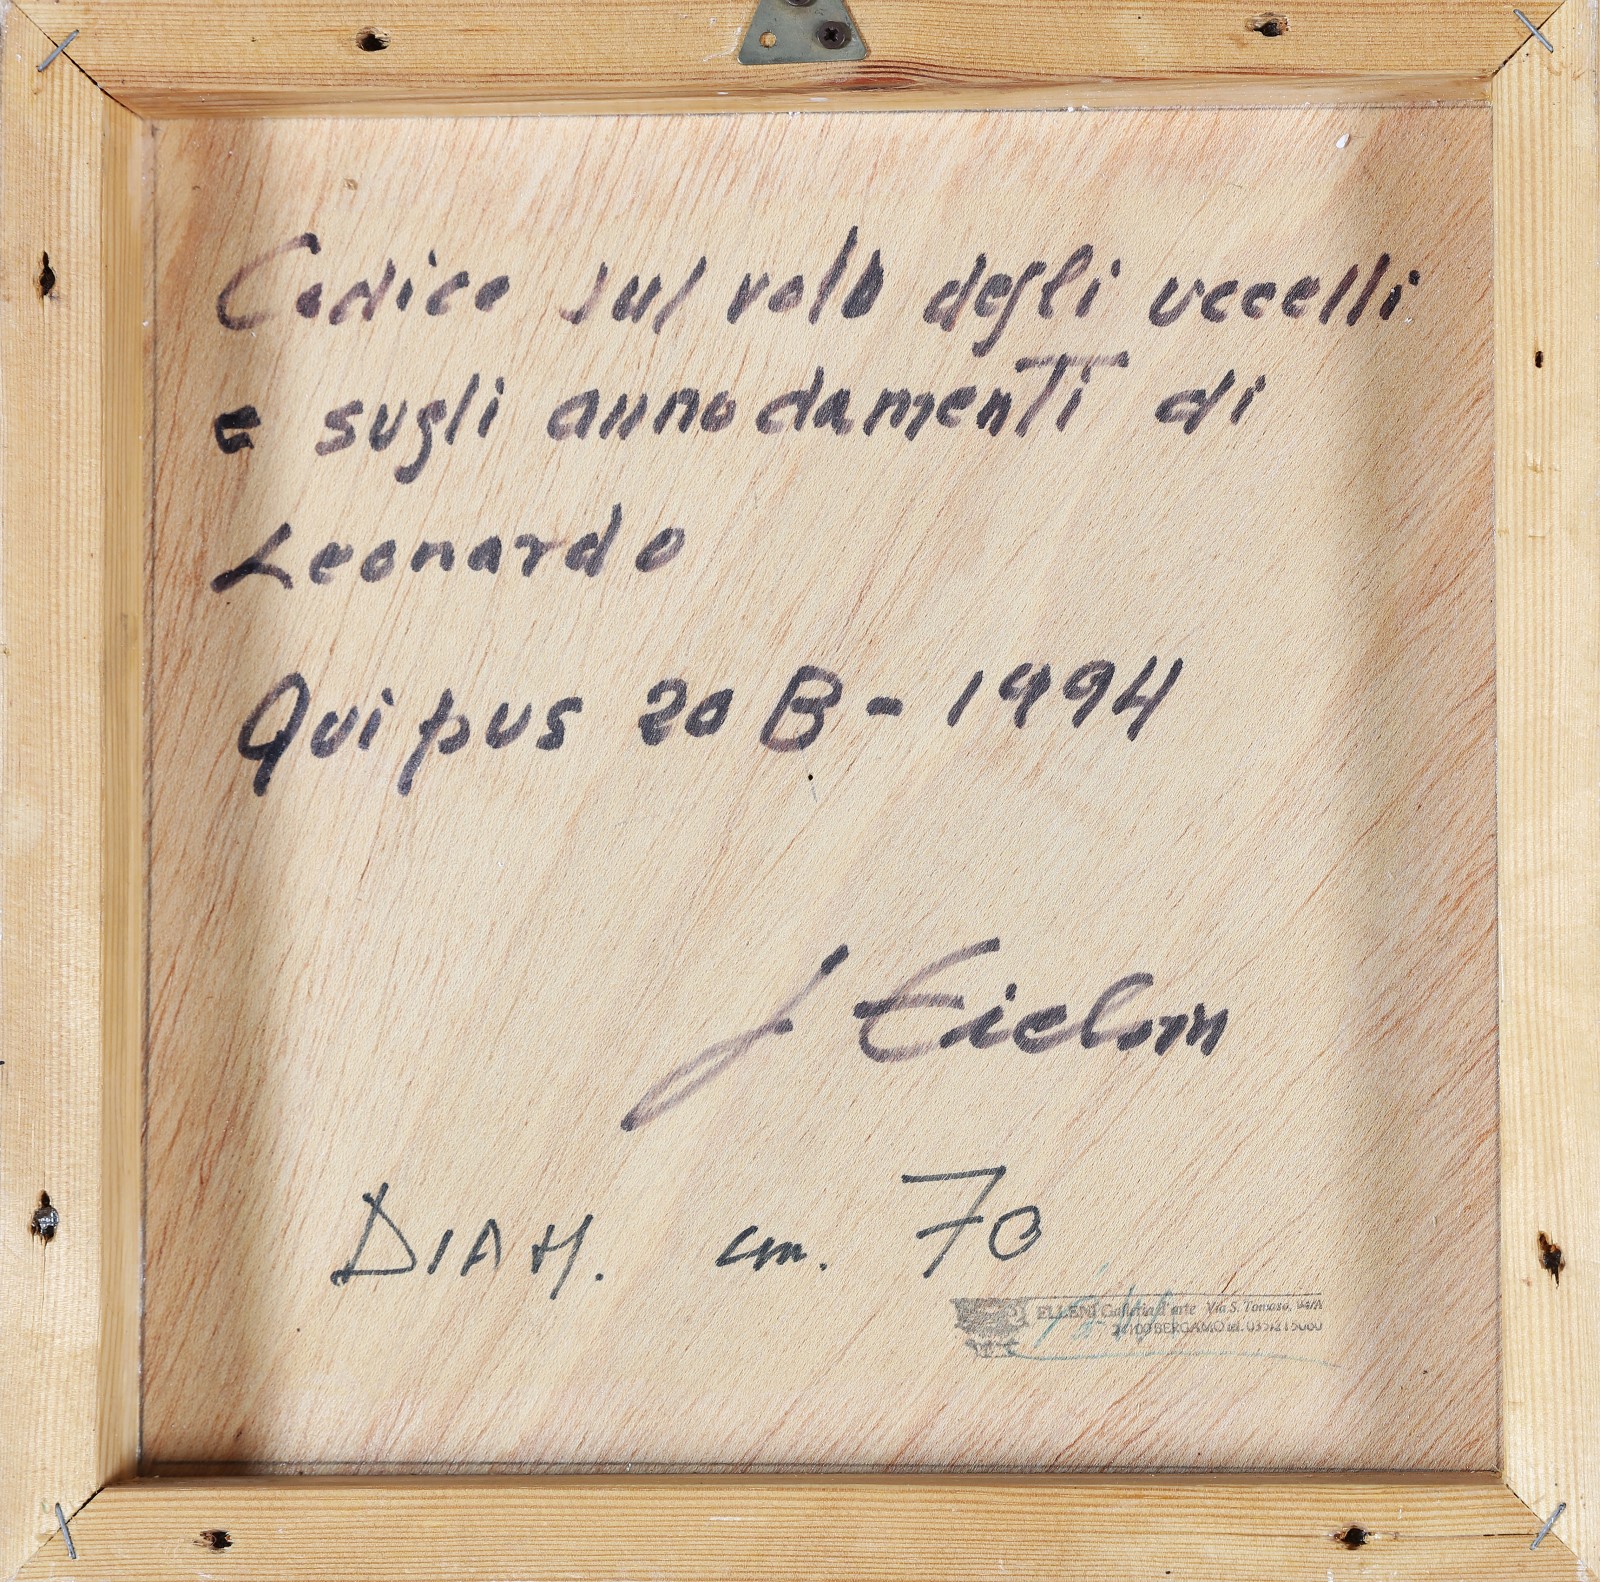 Codice sul volo degli uccelli
e sugli annodamenti di
Leonardo
Quipus 20 B - 1994
J. Eielson
DIAM. cm. 70
ELLENI Galleria d'arte Via S. Tomaso,
24100 BERGAMO tel. 035/215000